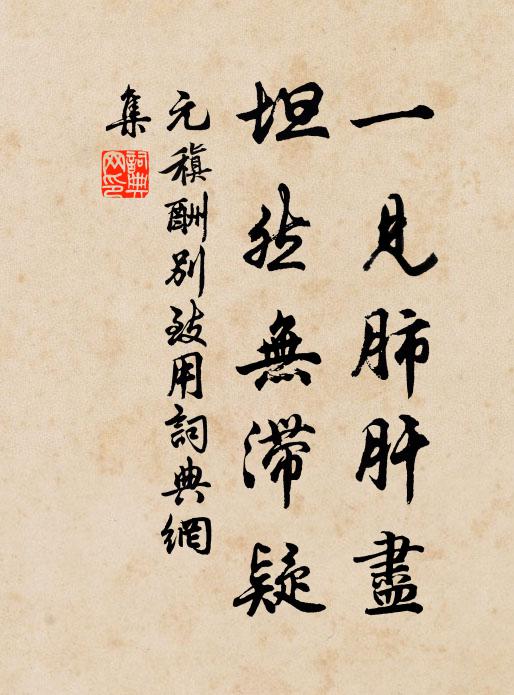 一見肺肝盡
坦然無滯疑
元稹酬別致用詞典網
集
詞典
网印